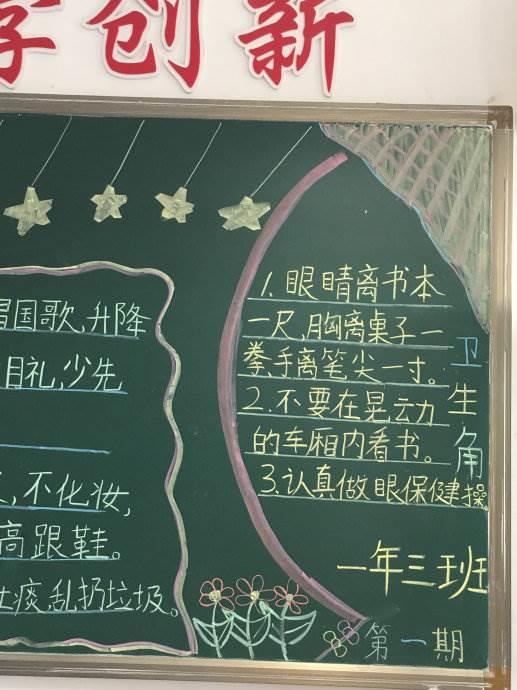 创新
国歌,升降
目礼,少先
不化妆,
高跟鞋。
痰乱扔垃圾。
1.眼睛离书本
一尺,胸离桌子一
拳,手离笔尖一寸。
2.不要在晃动
的车厢内看书。
3.认真做眼保健操。
卫生角
一年三班
第一期